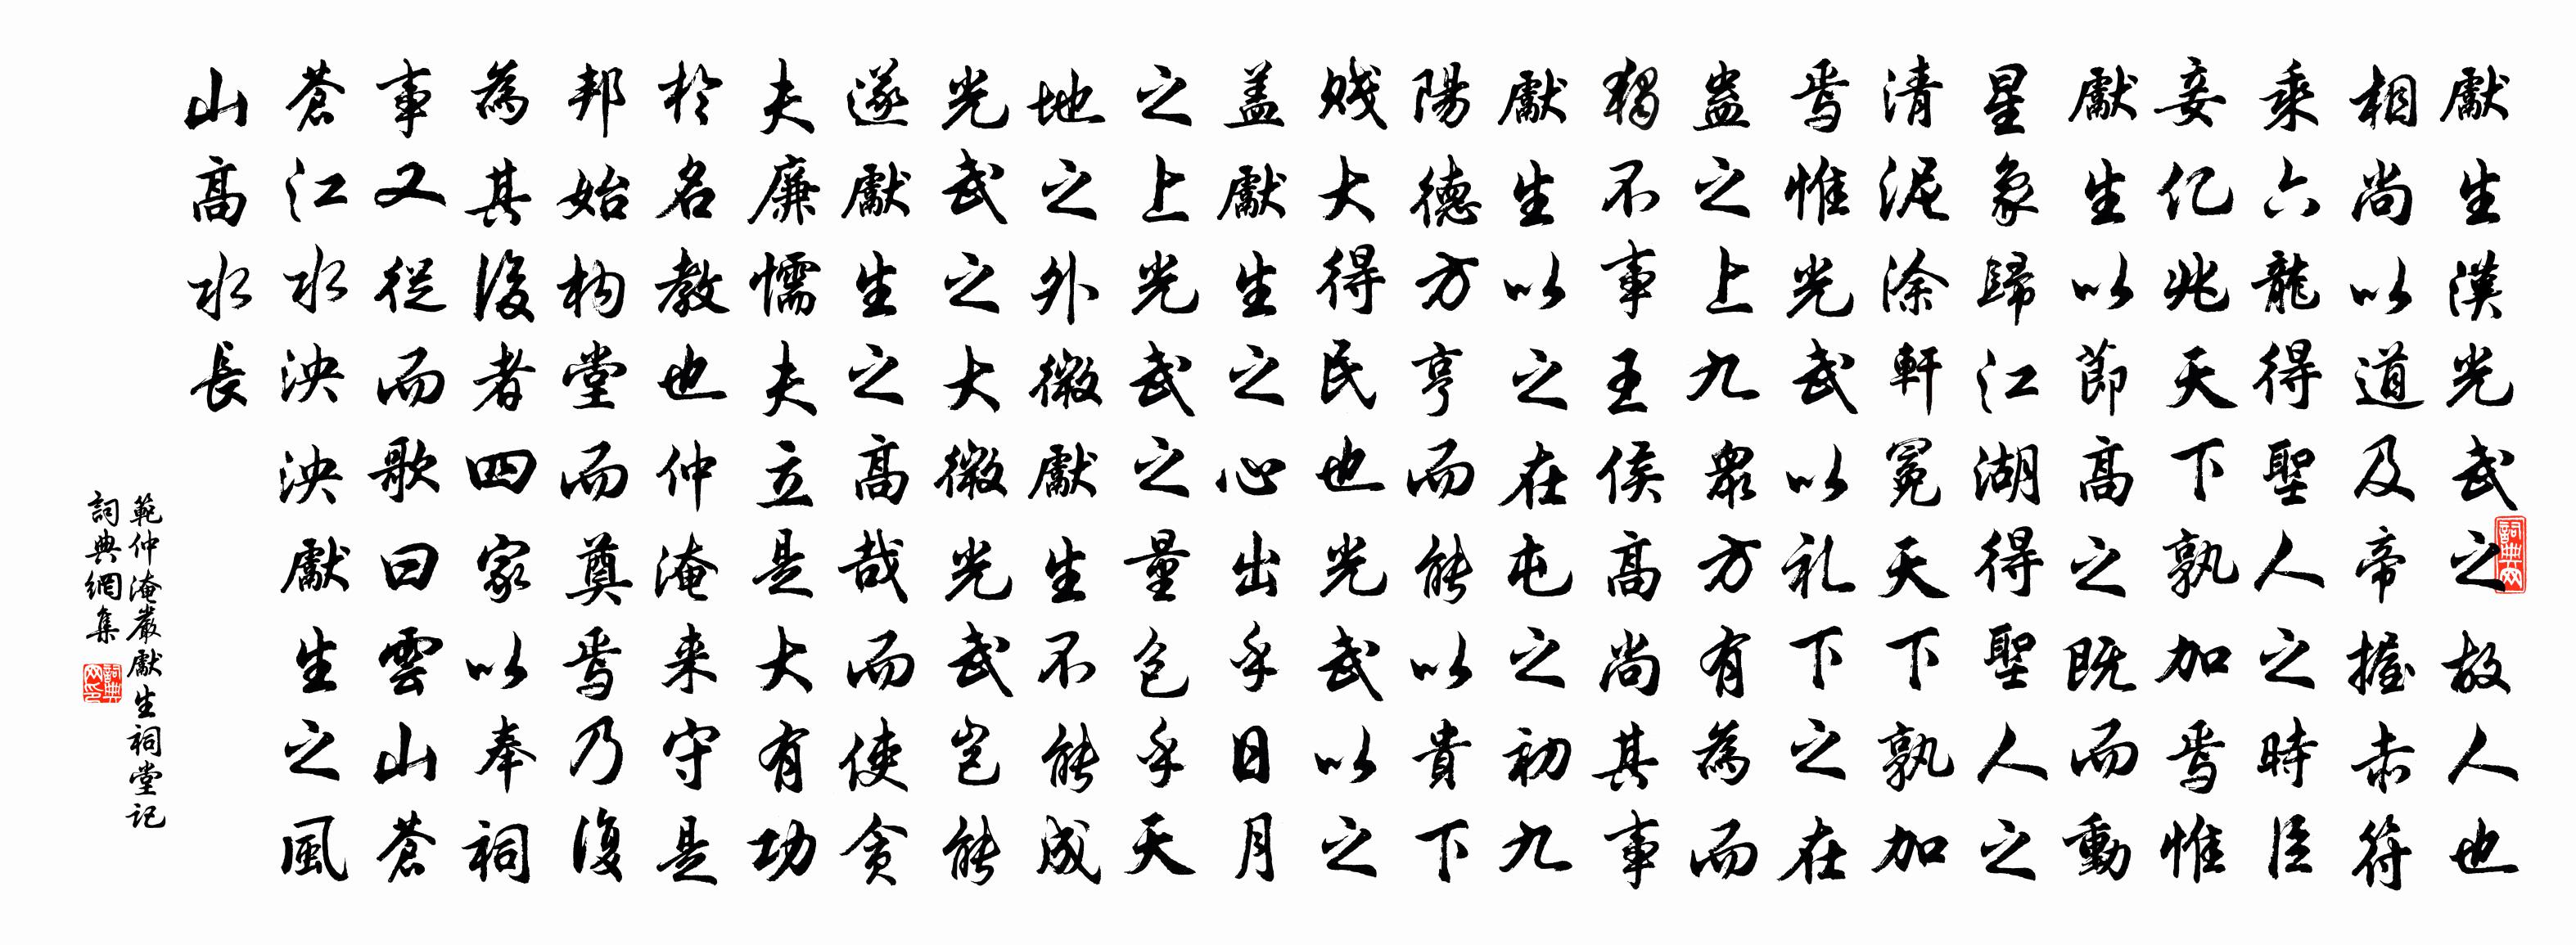 獻生漢光武之故人也
相尚以道及帝握赤符
乘六龍得聖人之時臣
妾亿兆天下孰加焉惟
獻生以節高之既而動
星象歸江湖得聖人之
清泥涂軒冕天下孰加
焉惟光武以礼下之在
蛊之上九眾方有為而
獨不事王侯高尚其事
獻生以之在屯之初九
陽德方亨而能以貴下
賤大得民也光武以之
盖獻生之心出乎日月
之上光武之量包乎天
地之外微獻生不能成
光武之大微光武豈能
遂獻生之高哉而使貪
夫廉懦夫立是大有功
於名教也仲淹来守是
邦始构堂而奠焉乃復
為其後者四家以奉祠
事又從而歌曰雲山蒼
蒼江水泱泱獻生之風
山高水長
範仲淹嚴獻生祠堂记
詞典網集
詞典网
詞典网印